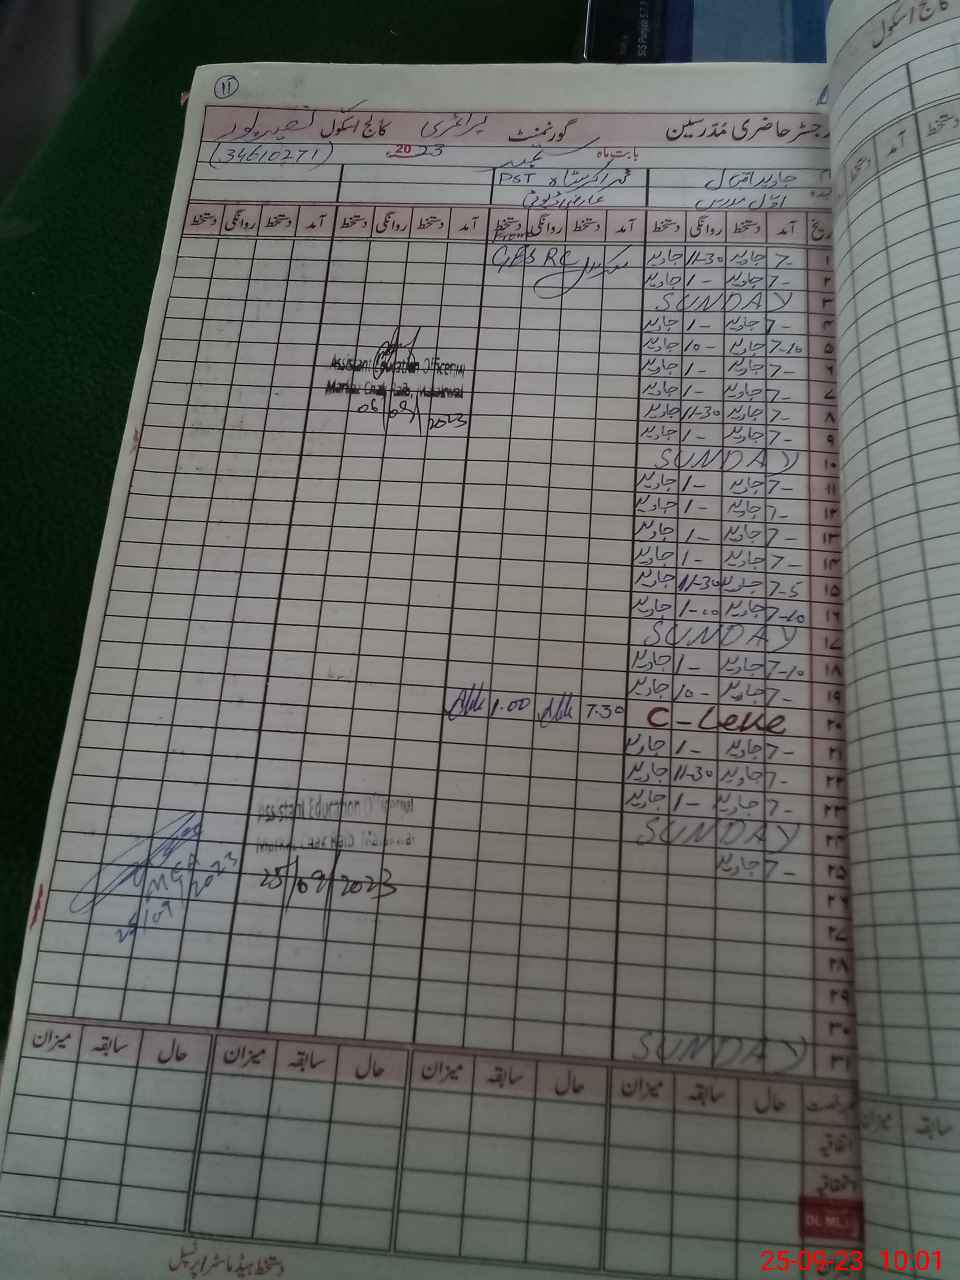 11
رجسٹر حاضری مدرسین گورنمنٹ پرائمری کالج اسکول نصیر پور
بابت ماہ ستمبر 2023 (34610271)
جاوید اقبال PST
اوّل مدرس عارضی ڈیوٹی
تاریخ آمد دستخط روانگی دستخط آمد دستخط روانگی دستخط آمد دستخط روانگی دستخط آمد دستخط روانگی دستخط
۱ 7- جاوید 11-30 جاوید From GPS
۲ 7- جاوید 1- جاوید
۳ SUNDAY
۴ 7- جاوید 1- جاوید
۵ 7-10 جاوید 10- جاوید
۶ 7- جاوید 1- جاوید
Assistant Education Officer (M)
۷ 7- جاوید 1- جاوید
Markaz
۸ 7- جاوید 11-30 جاوید
06/09/2023
۹ 7- جاوید 1- جاوید
۱۰ SUNDAY
۱۱ 7- جاوید 1- جاوید
۱۲ 7- جاوید 1- جاوید
۱۳ 7- جاوید 1- جاوید
۱۴ 7- جاوید 1- جاوید
۱۵ 7-5 جاوید 11-30 جاوید
۱۶ 7-10 جاوید 1-00 جاوید
۱۷ SUNDAY
۱۸ 7-10 جاوید 1- جاوید
۱۹ 7- جاوید 10- جاوید
۲۰ C-Leve 7.30 1.00
۲۱ 7- جاوید 1- جاوید
۲۲ 7- جاوید 11-30 جاوید
۲۳ 7- جاوید 1- جاوید
Assistant Education Officer (M)
۲۴ SUNDAY
۲۵ 7- جاوید
25/09/2023
MEA
25/09/2023
۲۶
۲۷
۲۸
۲۹
۳۰
۳۱ SUNDAY
حال سابقہ میزان حال سابقہ میزان حال سابقہ میزان حال سابقہ میزان
اتفاقیہ
استحقاقیہ
دستخط ہیڈ ماسٹر/پرنسپل
کالج اسکول
آمد دستخط
سابقہ میزان
25-09-23 10:01